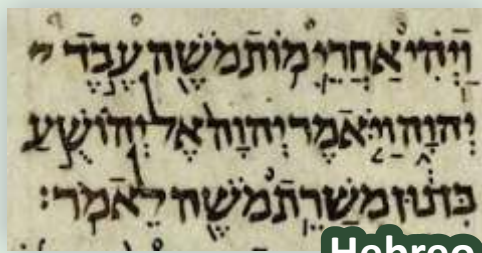 וַיְהִי אַחֲרֵי מוֹת מֹשֶׁה עֶבֶד
יְהוָה וַיֹּאמֶר יְהוָה אֶל יְהוֹשֻׁעַ
בִּן נוּן מְשָׁרֵת מֹשֶׁה לֵאמֹר׃
Hebreo